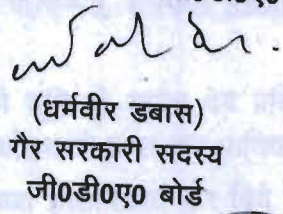 (धर्मवीर डबास)
गैर सरकारी सदस्य
जी0डी0ए0 बोर्ड